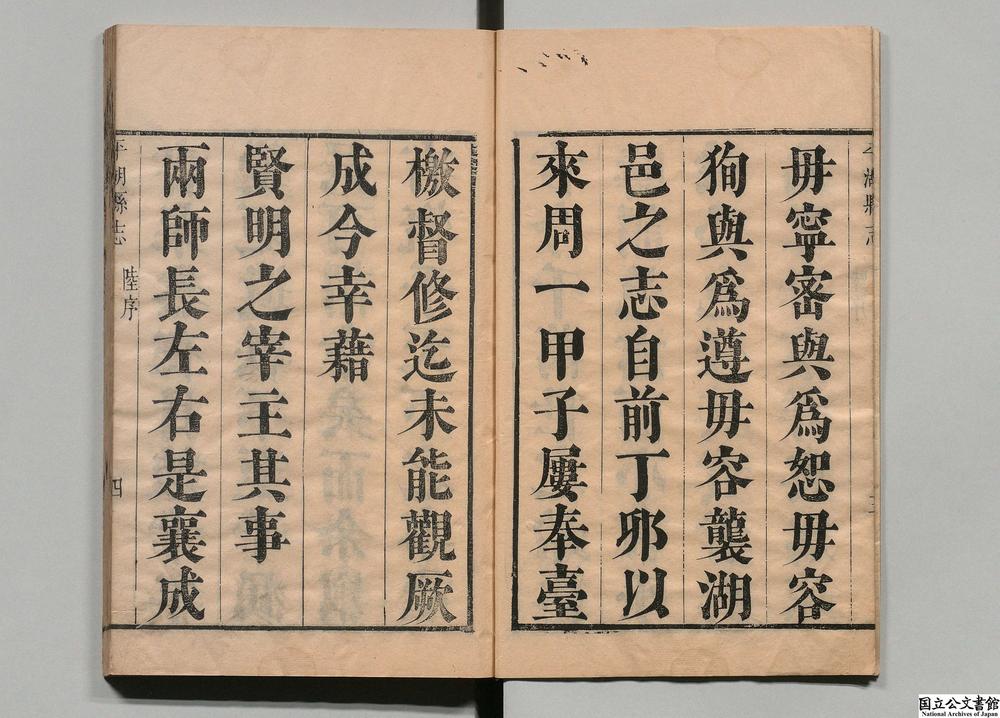 毋寧密與爲恕毋容
狥與爲遵毋容襲湖
邑之志自前丁邜以
來周一甲子屢奉臺
檄督修迄未能觀厥
成今幸藉
賢明之宰主其事
兩師長左右是襄成
湖縣志
陸序
四
国立公文書館
National Archives of Japan